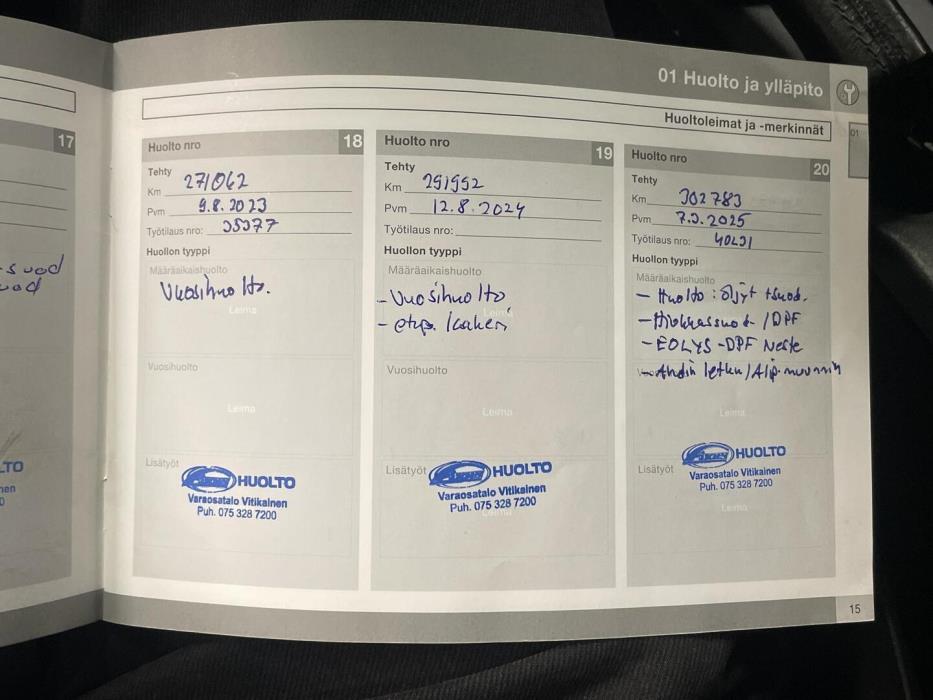 01 Huolto ja ylläpito
Huoltoleimat ja -merkinnät
01
17
Huolto nro 18
Tehty
Km 271062
Pvm 9.8.2023
Työtilaus nro: 35377
Huollon tyyppi
Määräaikaishuolto
Vuosihuolto.
Leima
Vuosihuolto
Leima
Lisätyöt
HUOLTO
Varaosatalo Vitikainen
Puh. 075 328 7200
Huolto nro 19
Tehty
Km 291952
Pvm 12.8.2024
Työtilaus nro:
Huollon tyyppi
Määräaikaishuolto
- Vuosihuolto
Leima
- etup.
Vuosihuolto
Leima
Lisätyöt
HUOLTO
Varaosatalo Vitikainen
Puh. 075 328 7200
Leima
Huolto nro 20
Tehty
Km 302783
Pvm 7.3.2025
Työtilaus nro:
Huollon tyyppi
Määräaikaishuolto
- Huolto: öljyt +suod.
- /DPF
- EOLYS-DPF Neste
- Ahdin letku/Alip.muunnin
Leima
Lisätyöt
HUOLTO
Varaosatalo Vitikainen
Puh. 075 328 7200
Leima
15